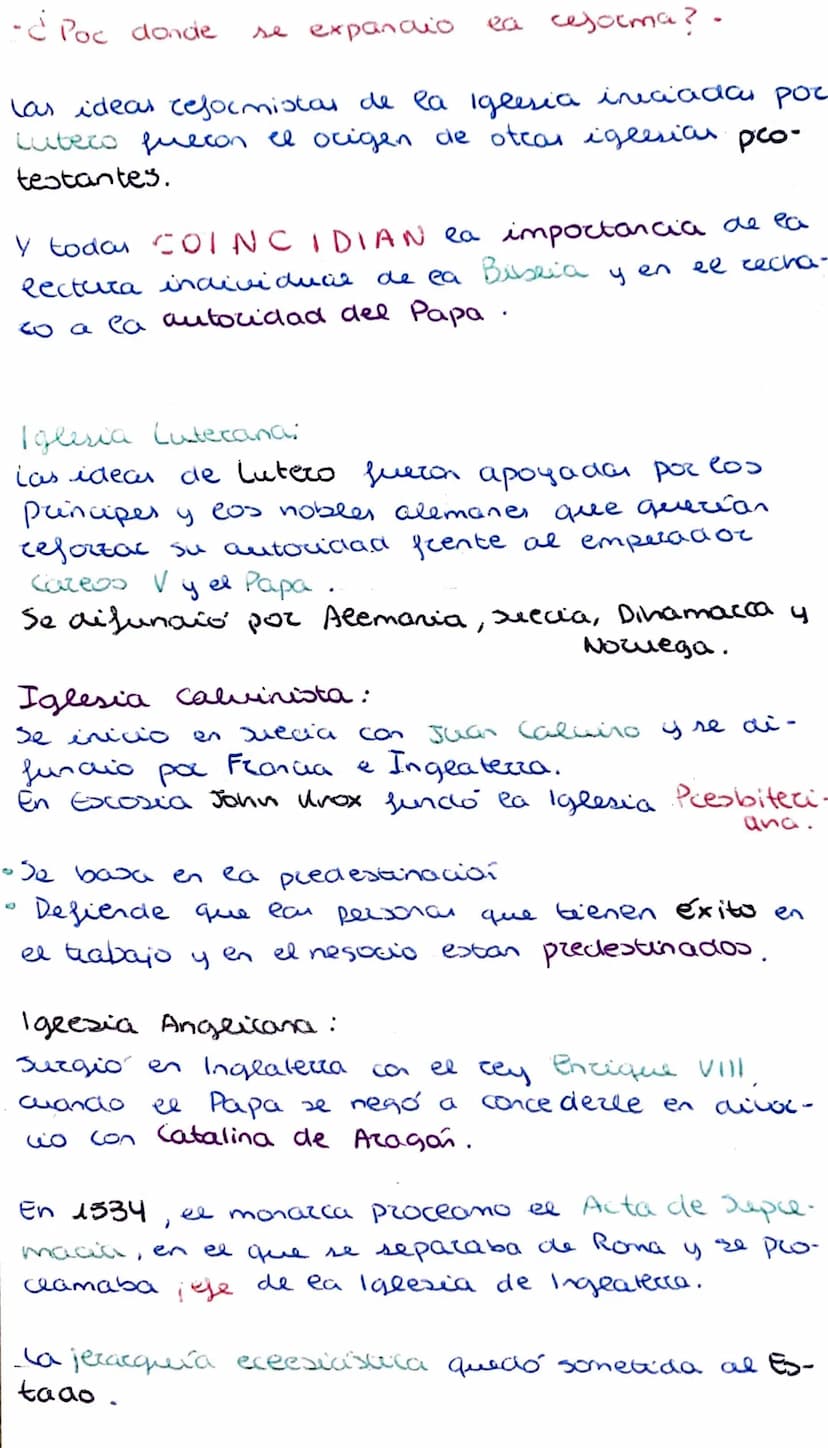 -¿Por donde se expandio la reforma? -
Las ideas reformistas de la Iglesia iniciadas por
Lutero fueron el origen de otras iglesias pro-
testantes.
Y todas COINCIDIAN la importancia de la
lectura individual de la Biblia y en el recha-
zo a la autoridad del Papa.
Iglesia Luterana:
Las ideas de Lutero fueron apoyadas por los
Principes y los nobles alemanes que querían
reforzar su autoridad frente al emperador
Carlos V y el Papa.
Se difundió por Alemania, suecia, Dinamarca y
Noruega.
Iglesia Calvinista:
Se inicio en suecia con Juan Calvino y se di-
fundio por Francia e Inglaterra.
En Escosia John Knox fundó la Iglesia Presbiteri-
ana.
• Se basa en la predestinación
• Defiende que las personas que tienen éxito en
el trabajo y en el negocio estan predestinados.
Iglesia Anglicana:
Surgió en Inglaterra con el rey Enrique VIII,
cuando el Papa se negó a concederle en divor-
cio con Catalina de Aragón.
En 1534, el monarca proclamo el Acta de Supre-
macia, en el que se separaba de Roma y se pro-
clamaba jefe de la Iglesia de Inglaterra.
La jerarquía eclesiástica quedó sometida al Es-
tado.